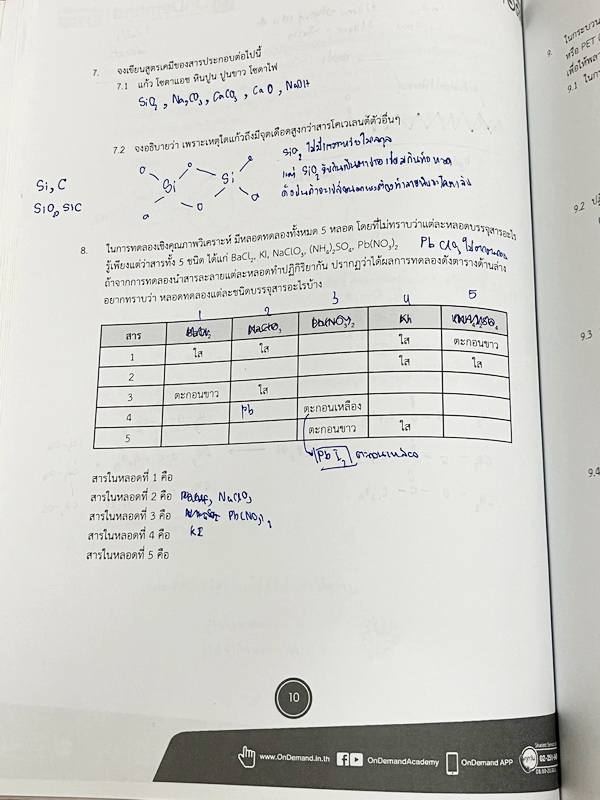 7. จงเขียนสูตรเคมีของสารประกอบต่อไปนี้
7.1 แก้ว โซดาแอช หินปูน ปูนขาว โซดาไฟ
SiO₂ , Na₂CO₃ , CaCO₃ , CaO , NaOH
7.2 จงอธิบายว่า เพราะเหตุใดแก้วถึงมีจุดเดือดสูงกว่าสารโคเวเลนต์ตัวอื่นๆ
SiO₂
แต่ SiO₂
Si Si
Si, C
SiO₂, SiC
8. ในการทดลองเชิงคุณภาพวิเคราะห์ มีหลอดทดลองทั้งหมด 5 หลอด โดยที่ไม่ทราบว่าแต่ละหลอดบรรจุสารอะไร
รู้เพียงแต่ว่าสารทั้ง 5 ชนิด ได้แก่ BaCl₂, KI, NaClO₃, (NH₄)₂SO₄, Pb(NO₃)₂
ถ้าจากการทดลองนำสารละลายแต่ละหลอดทำปฏิกิริยากัน ปรากฏว่าได้ผลการทดลองดังตารางด้านล่าง
อยากทราบว่า หลอดทดลองแต่ละชนิดบรรจุสารอะไรบ้าง
1 2 3 4 5
สาร
1 ใส ใส ใส ตะกอนขาว
2 ใส ใส
3 ตะกอนขาว ใส
4 Pb ตะกอนเหลือง
5 ตะกอนขาว ใส
PbI₂ ตะกอนเหลือง
สารในหลอดที่ 1 คือ
สารในหลอดที่ 2 คือ NaClO₃
สารในหลอดที่ 3 คือ Pb(NO₃)₂
สารในหลอดที่ 4 คือ KI
สารในหลอดที่ 5 คือ
10
www.OnDemand.in.th OnDemandAcademy OnDemand APP
9.
หรือ PET
9.1
9.2
9.3
9.4